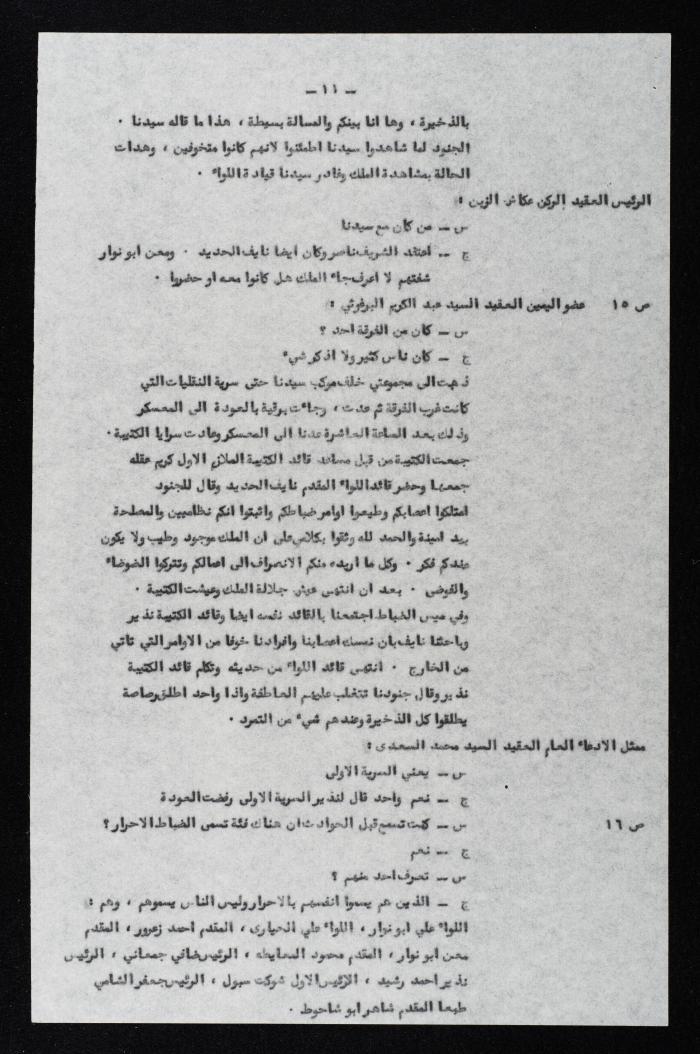 ـ ١١ ـ
بالذخيرة ، وها انا بينكم والمسالة بسيطة ، هذا ما قاله سيدنا .
الجنود لما شاهدوا سيدنا اطمئنوا لانهم كانوا متخوفين ، وهدات
الحالة بمشاهدة الملك وغادر سيدنا قيادة اللواء .
الرئيس العقيد الركن عكاش الزين :
س ـ من كان مع سيدنا
ج ـ اعتقد الشريف ناصر وكان ايضا نايف الحديد . ومعن ابو نوار
شفتهم لا اعرف جاء الملك هل كانوا معه او حضروا .
ص ١٥ عضو اليمين العقيد السيد عبد الكريم البرغوثي :
س ـ كان من الفرقة احد ؟
ج ـ كان ناس كثير ولا اذكر شيء
ذهبت الى مجموعتي خلف موكب سيدنا حتى سرية النقليات التي
كانت غرب الفرقة ثم عدت ، وجاءت برقية بالعودة الى المعسكر
وذلك بعد الساعة العاشرة عدنا الى المعسكر وعادت سرايا الكتيبة .
جمعت الكتيبة من قبل مساعد قائد الكتيبة الملازم الاول كريم عقله
جمعها وحضر قائد اللواء المقدم نايف الحديد وقال للجنود
امتلكوا اعصابكم وطيعوا اوامر ضباطكم واثبتوا انكم نظاميين والمصلحة
بيد امينة والحمد لله وثقوا بكلامي على ان الملك موجود وطيب ولا يكون
عندكم فكر . وكل ما اريده منكم الانصراف الى اعمالكم وتتركوا الضوضاء
والفوضى . بعد ان انتهى عيش جلالة الملك وعيشت الكتيبة .
وفي ميس الضباط اجتمعنا بالقائد نفسه ايضا وقائد الكتيبة نذير
وباحثنا نايف بان نمسك اعصابنا وافرادنا خوفا من الاوامر التي تاتي
من الخارج . انتهى قائد اللواء من حديثه وتكلم قائد الكتيبة
نذير وقال جنودنا تتغلب عليهم العاطفة واذا واحد اطلق رصاصة
يطلقوا كل الذخيرة وعندهم شيء من التمرد .
ممثل الادعاء العام العقيد السيد محمد السعدي :
س ـ يعني السرية الاولى
ج ـ نعم واحد قال لنذير السرية الاولى رفضت العودة
ص ١٦ س ـ كنت تسمع قبل الحوادث ان هناك فئة تسمى الضباط الاحرار ؟
ج ـ نعم
س ـ تعرف احد منهم ؟
ج ـ الذين هم يسموا انفسهم بالاحرار وليس الناس يسموهم ، وهم :
اللواء علي ابو نوار ، اللواء علي الحياري ، المقدم احمد زعرور ، المقدم
معن ابو نوار ، المقدم محمود المعايطه ، الرئيس ضافي جمعاني ، الرئيس
نذير احمد رشيد ، الرئيس الاول شوكت سبول ، الرئيس جعفر الشامي
طبعا المقدم شاهر ابو شاحوط .